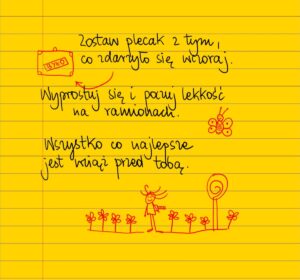 Zostaw plecak z tym,
co zdarzyło się wczoraj.
BYŁO
Wyprostuj się i poczuj lekkość
na ramionach.
Wszystko co najlepsze
jest wciąż przed tobą.